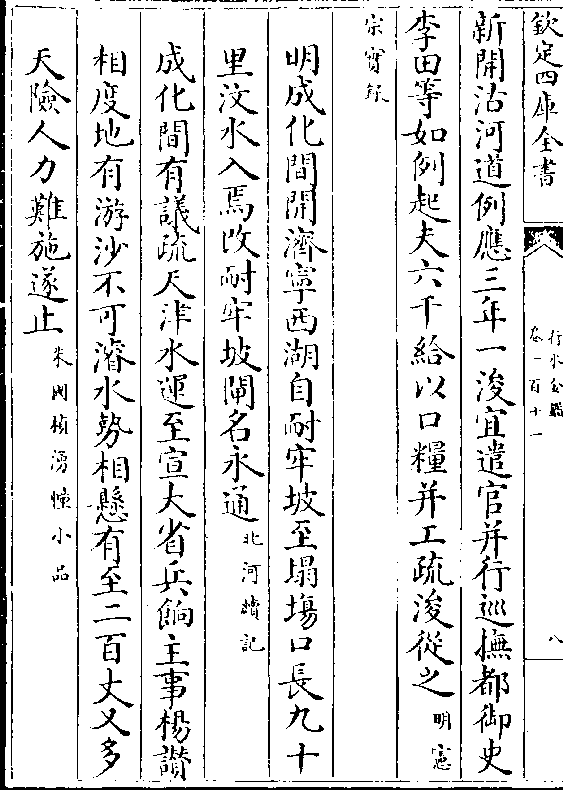 欽定四庫全書
行水金鑑
卷一百十一
八
新開沽河道例應三年一浚宜遣官并行巡撫都御史
李田等如例起夫六千給以口糧并工疏浚從之明憲
宗實錄
明成化間開濟寧西湖自耐牢坡至塌塲口長九十
里汶水入焉改耐牢坡閘名永通北河續記
成化間有議疏天津水運至宣大省兵餉主事楊讃
相度地有游沙不可濬水勢相懸有至二百丈又多
天險人力難施遂止朱國楨湧幢小品